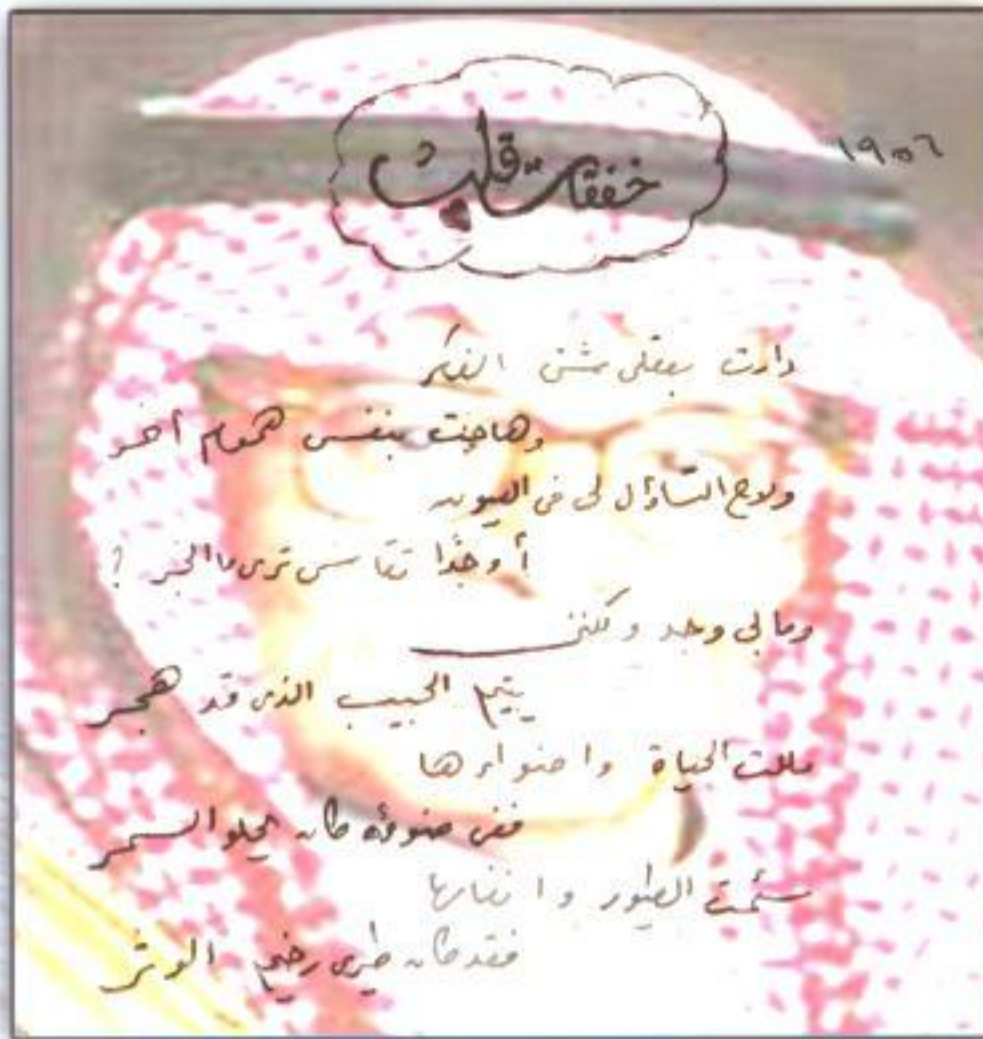 ١٩٥٦
خفقات قلب
دارت بعقلي شتى الفكر
وهاجت بنفسي هموم أخر
ولاح التساؤل لى فى العيون
أ وجدًا تقاسى ترى ما الخبر ؟
وما بي وجد ولكننى
يتيم الحبيب الذى قد هجر
مللت الحياة واضوارها
ففى ضوئه كان يحلو السمر
سئمت الطيور وانغامها
فقد كان طيرى رخيم الوتر